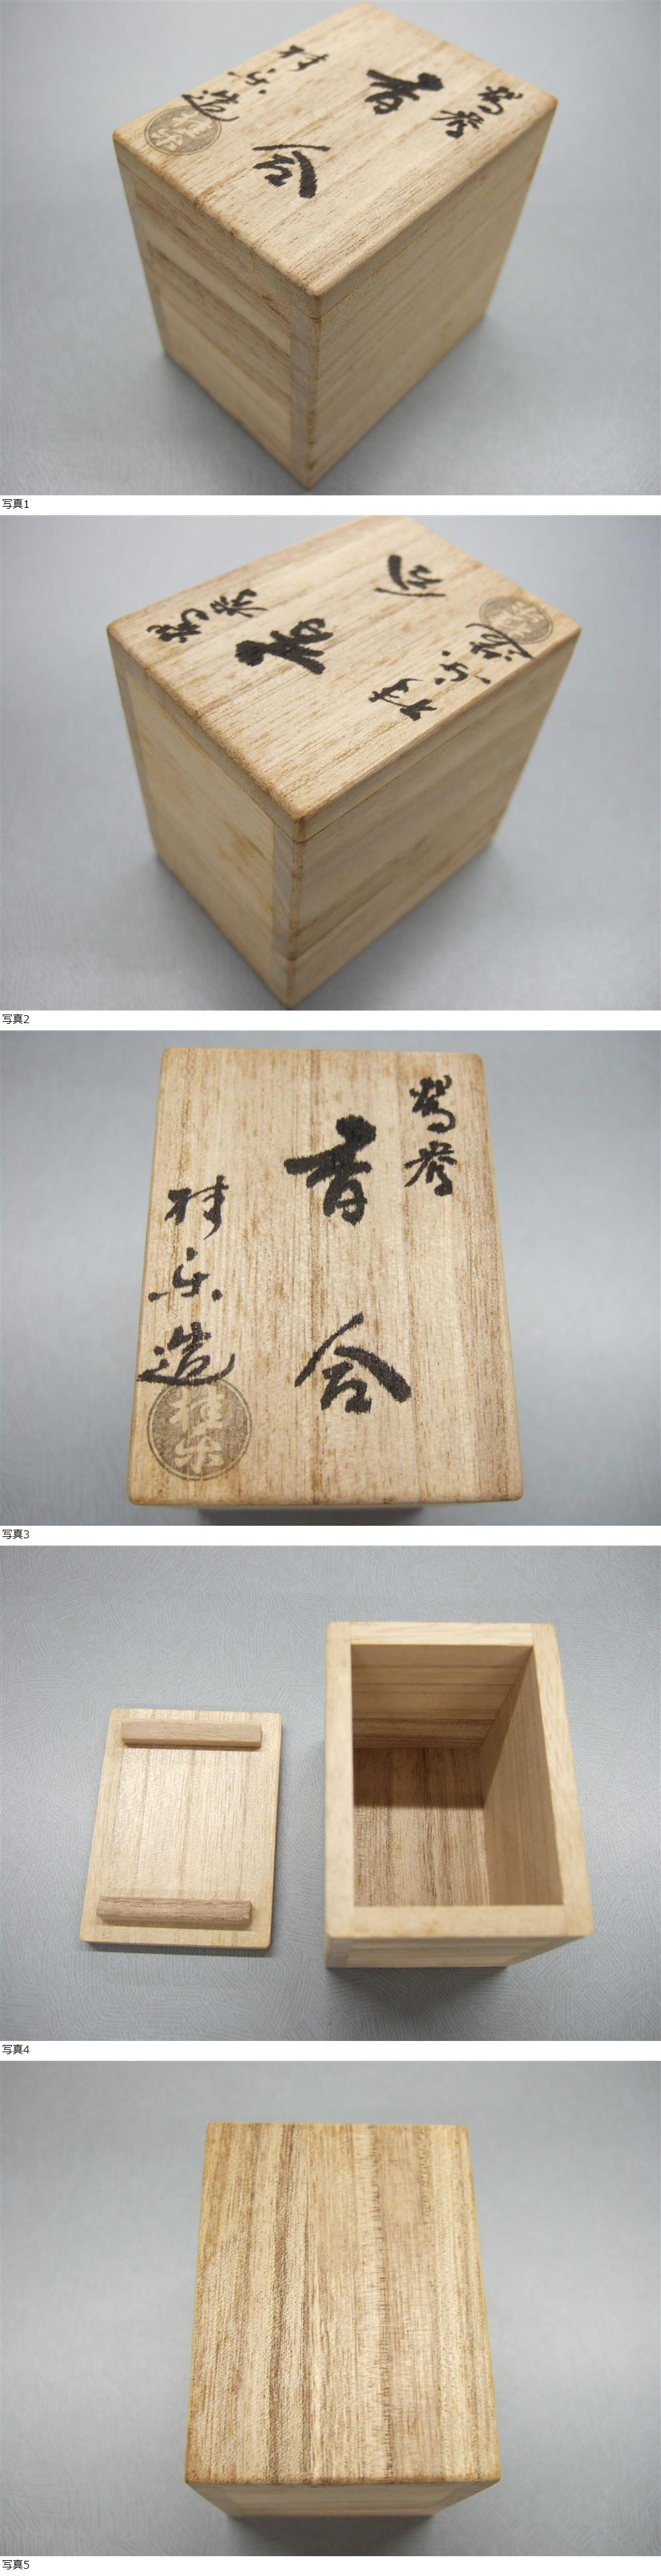 鴛鴦
香
合
桂楽造
桂楽
写真1
鴛鴦
香
合
桂楽造
桂楽
写真2
鴛鴦
香
合
桂楽造
桂楽
写真3
写真4
写真5